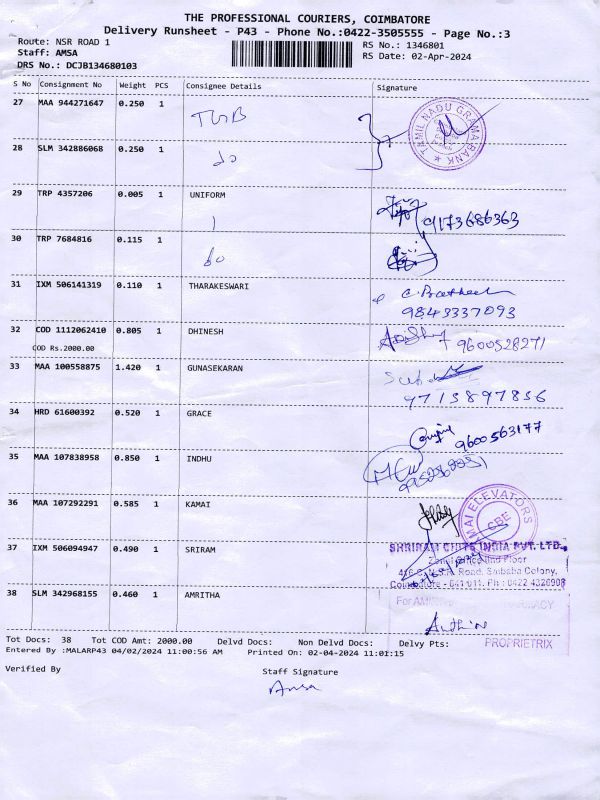 THE PROFESSIONAL COURIERS, COIMBATORE
Delivery Runsheet - P43 - Phone No.:0422-3505555 - Page No.:3
Route: NSR ROAD 1
RS No.: 1346801
Staff: AMSA
RS Date: 02-Apr-2024
DRS No.: DCJB134680103
S No Consignment No Weight PCS Consignee Details Signature
27 MAA 944271647 0.250 1 TGB
TAMIL NADU GRAMA BANK
28 SLM 342886068 0.250 1 do
29 TRP 4357206 0.005 1 UNIFORM
9173686363
30 TRP 7684816 0.115 1 do
31 IXM 506141319 0.110 1 THARAKESWARI
9843337093
32 COD 1112062410 0.805 1 DHINESH
9600528271
COD Rs.2000.00
33 MAA 100558875 1.420 1 GUNASEKARAN
9713897836
34 HRD 61600392 0.520 1 GRACE
9600563177
35 MAA 107838958 0.850 1 INDHU
36 MAA 107292291 0.585 1 KAMAI
MAI ELEVATORS
CBE
37 IXM 506094947 0.490 1 SRIRAM
SHRIRAM CHITS INDIA PVT. LTD.,
Road, Saibaba Colony,
Coimbatore - 641 011. Ph : 0422 4320908
38 SLM 342968155 0.460 1 AMRITHA
PROPRIETRIX
Tot Docs: 38 Tot COD Amt: 2000.00 Delvd Docs: Non Delvd Docs: Delvy Pts:
Entered By :MALARP43 04/02/2024 11:00:56 AM Printed On: 02-04-2024 11:01:15
Verified By
Staff Signature
Amsa